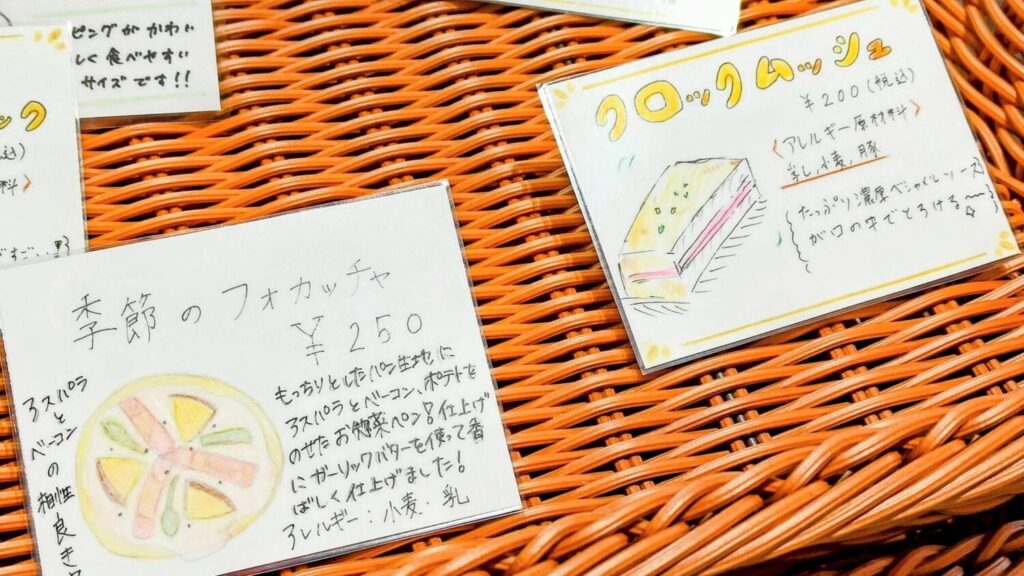 ピングがかわい
しく食べやすい
サイズです!!
ック
込)
料〉
クロックムッシュ
￥200(税込)
〈アレルギー原材料〉
乳、小麦、豚
たっぷり濃厚ベシャメルソース
が口の中でとろける〜〜☆
季節のフォカッチャ
￥250
もっちりとしたパン生地に
アスパラとベーコン、ポテトを
のせたお惣菜パン!仕上げ
にガーリックバターを使って香
ばしく仕上げました!
アレルギー：小麦・乳
アスパラ
と
ベーコン
の相性良き